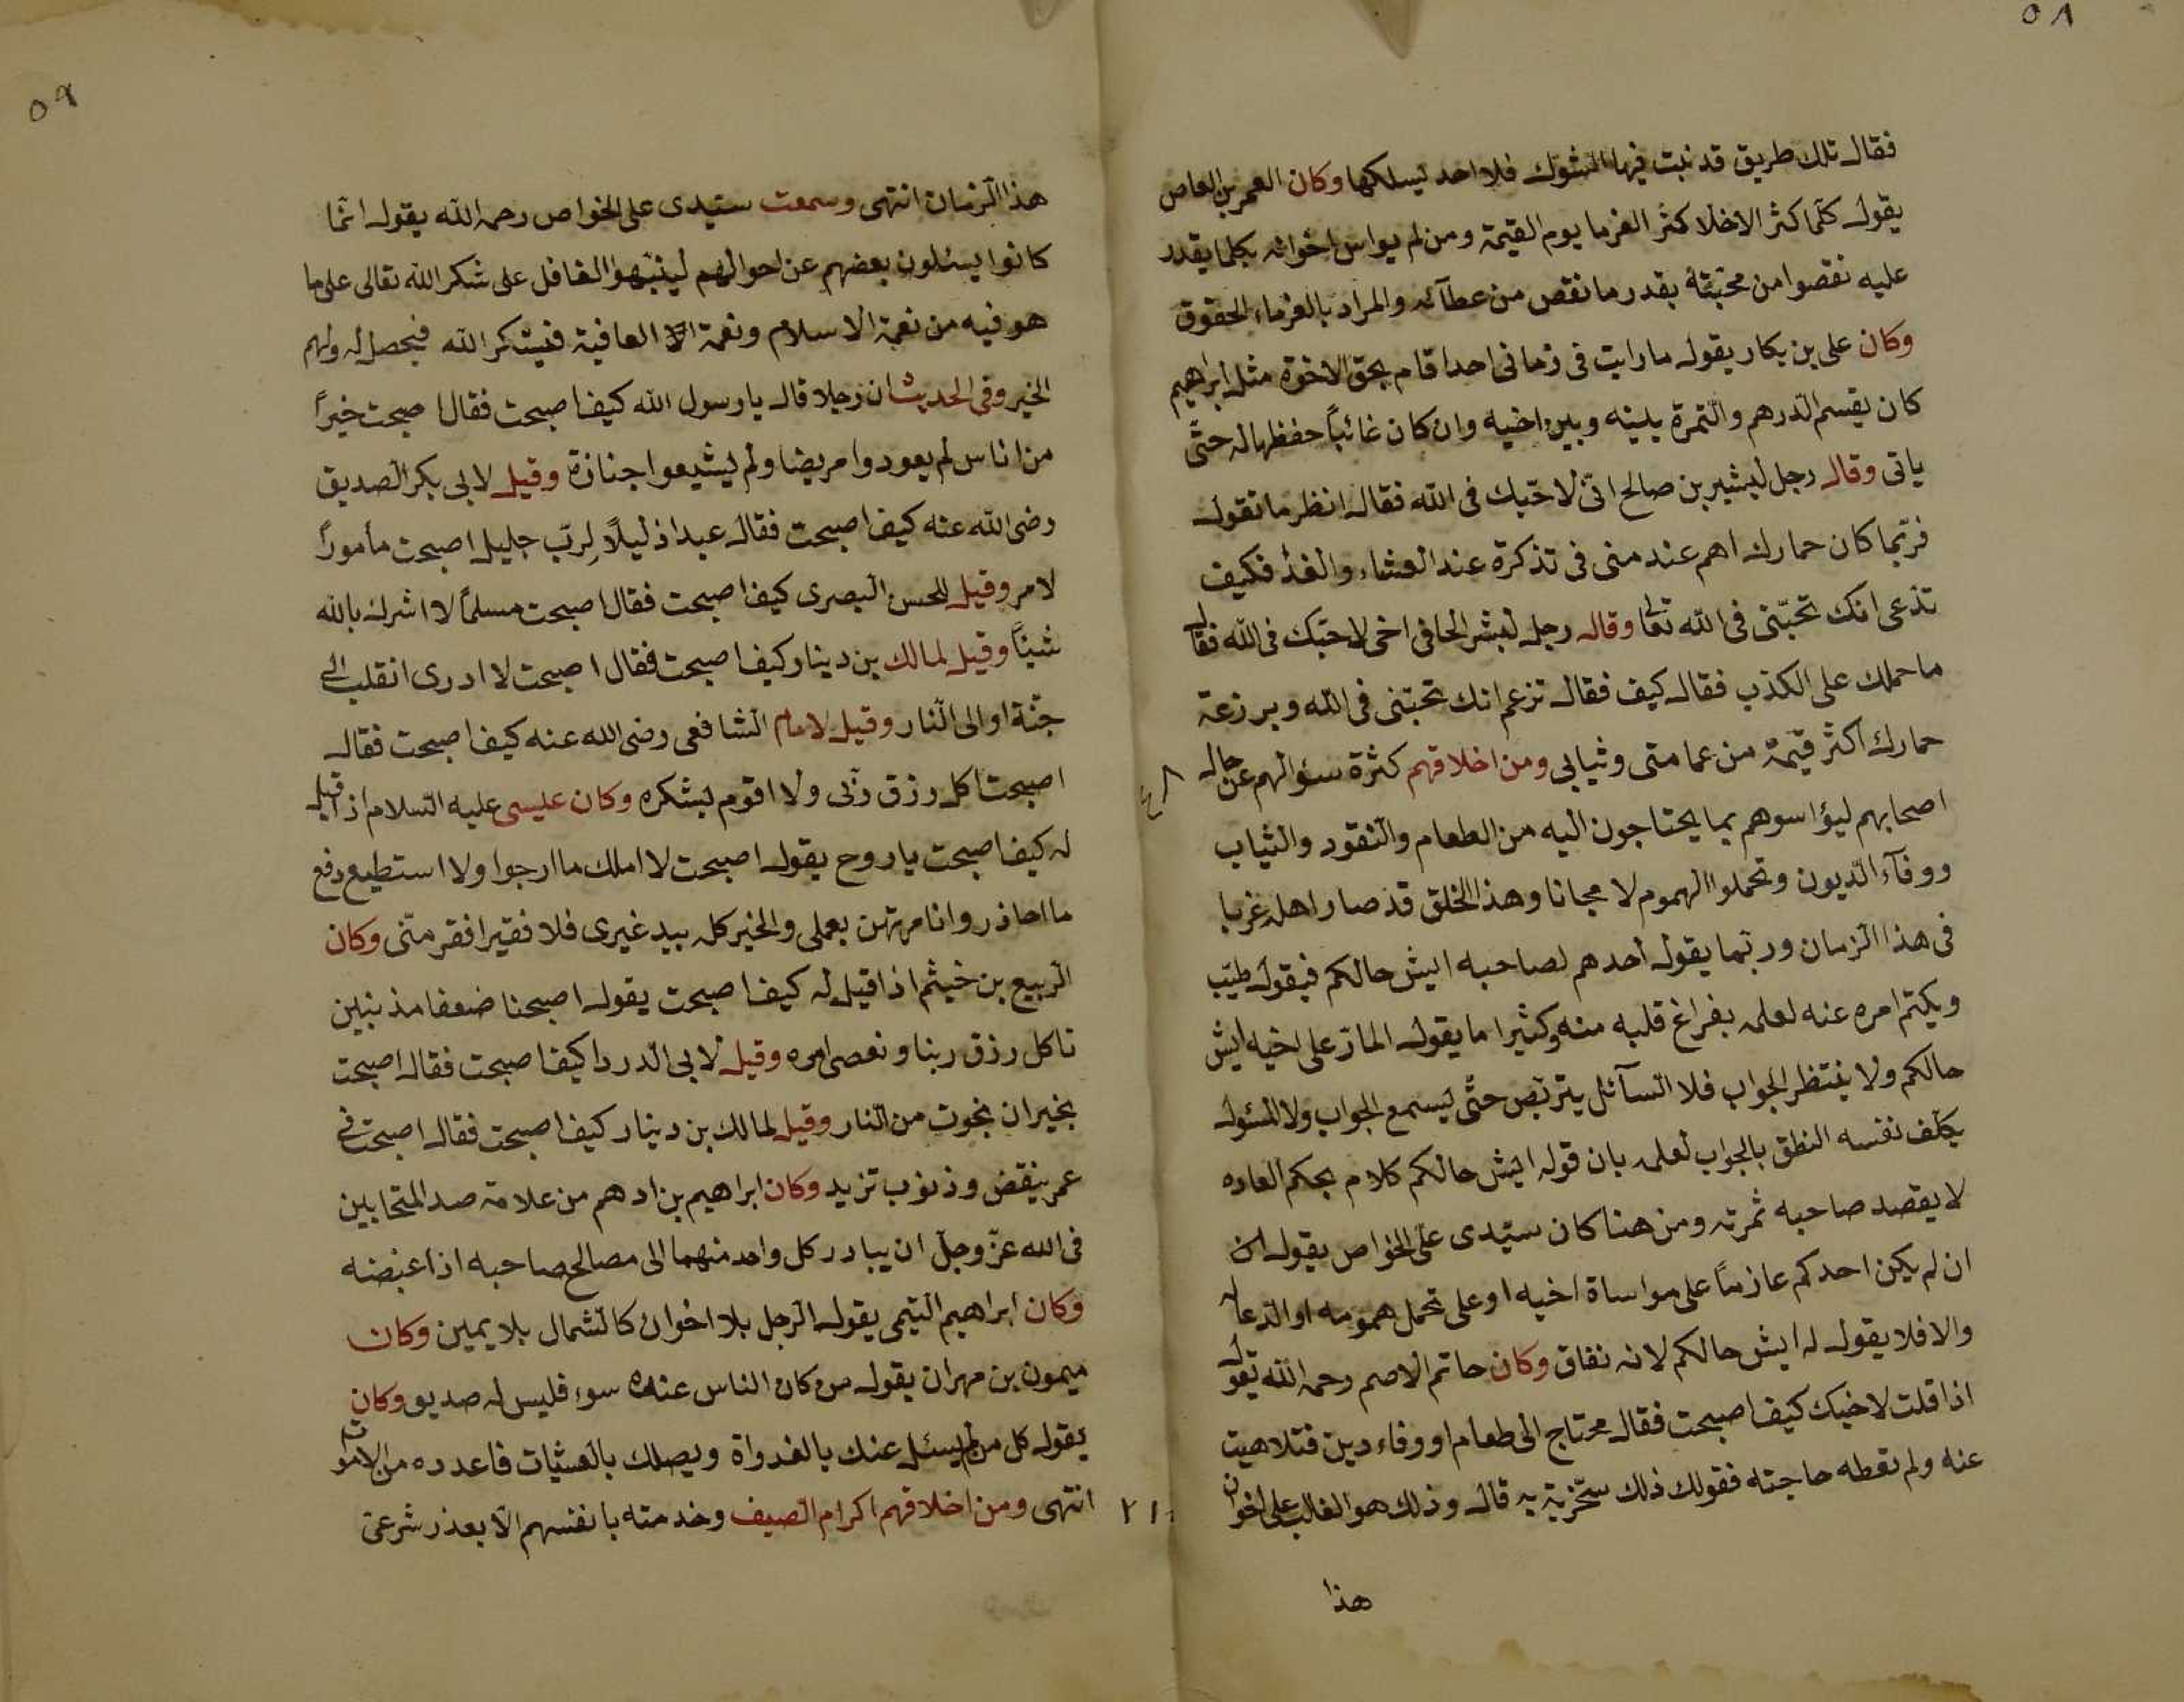 ٥٨
فقال تلك طريق قد نبت فيها الشوك فلا احد يسلكها وكان العمر بن العاص
يقول كلما كثر الاخلا كثر الغرما يوم القيمة ومن لم يواس اخوانه بكلما يقدر
عليه نقصوا من محبته بقدر ما نقص من عطآئه والمراد بالغرماء الحقوق
وكان على بن بكار يقول ما رايت فى زمانى احدا قام بحق الاخوة مثل ابراهيم
كان يقسم الدرهم والتمرة بينه وبين اخيه وان كان غائباً حفظها له حتى
ياتى وقال رجل لبشير بن صالح انى لاحبك فى الله فقال انظر ما تقول
فربما كان حمارك اهم عند منى فى تذكرة عند العشاء والغذ فكيف
تدعى انك تحبنى فى الله تعا وقال رجل لبشر الحافى اخى لاحبك فى الله فقال
ما حملك على الكذب فقال كيف فقال تزعم انك تحبنى فى الله وبرذعة
حمارك اكثر قيمة من عمامتى وثيابى ومن اخلاقهم كثرة سئوالهم عن حال
اصحابهم ليؤاسوهم بما يحتاجون اليه من الطعام والنقود والثياب
ووفآء الديون وتحملوا الهموم لا مجانا وهذا الخلق قد صار اهله غربا
فى هذا الزمان وربما يقول أحدهم لصاحبه ايش حالكم فيقول طيب
ويكتم امره عنه لعلمه بفراغ قلبه منه وكثيرا ما يقول المار على اخيه ايش
حالكم ولا ينتظر الجواب فلا السآئل يتربص حتى يسمع الجواب ولا المسئول
يكلف نفسه النطق بالجواب لعلمه بان قوله ايش حالكم كلام بحكم العاده
لا يقصد صاحبه ثمرته ومن هنا كان سيدى على الخواص يقول ان
ان لم يكن احدكم عازماً على مواساة اخيه او على تحمل همومه او الدعا له
والا فلا يقول له ايش حالكم لانه نفاق وكان حاتم الاصم رحمه الله يقول
اذا قلت لاخيك كيف اصبحت فقال محتاج الى طعام او وفاء دين فتلاهيت
عنه ولم تعطه حاجته فقولك ذلك سخرية به قال وذلك هو الغالب على اخوان
هذا
٥٩
هذا الزمان انتهى وسمعت سيدى على الخواص رحمه الله يقول انما
كانوا يسئلون بعضهم عن احوالهم لينبهوا الغافل على شكر الله تعالى على ما
هو فيه من نعمة الاسلام ونعمة العافية فيشكر الله فيحصل له ولهم
الخير وفى الحديث ان رجلا قال يا رسول الله كيف اصبحت فقال اصبحت خيراً
من اناس لم يعودوا مريضا ولم يشيعوا جنازة وقيل لابى بكر الصديق
رضى الله عنه كيف اصبحت فقال عبدا ذليلاً لرب جليل اصبحت مأموراً
لامر وقيل للحسن البصرى كيف اصبحت فقال اصبحت مسلماً لا اشرك بالله
شيئاً وقيل لمالك بن دينار كيف اصبحت فقال اصبحت لا ادرى انقلب الى
جنة او الى النار وقيل لامام الشافعى رضى الله عنه كيف اصبحت فقال
اصبحت اكل رزق ربى ولا اقوم بشكره وكان عليسى عليه السلام اذا قيل
له كيف اصبحت يا روح يقول اصبحت لا املك ما ارجوا ولا استطيع دفع
ما احاذر وانا مرتهن بعملى والخير كله بيد غيرى فلا فقيرا فقر منى وكان
الربيع بن خيثم اذا قيل له كيف اصبحت يقول اصبحنا ضعفا مذنبين
ناكل رزق ربنا ونعصى امره وقيل لابى الدردا كيف اصبحت فقال اصبحت
بخير ان نجوت من النار وقيل لمالك بن دينار كيف اصبحت فقال اصبحت فى
عمر ينقض وذنوب تزيد وكان ابراهيم بن ادهم من علامة صد المتحابين
فى الله عز وجل ان يبادر كل واحد منهما الى مصالح صاحبه اذا غبضه
وكان ابراهيم التيمى يقول الرجل بلا اخوان كالشمال بلا يمين وكان
ميمون بن مهران يقول من كان الناس عنده سوء فليس له صديق وكان
يقول كل من لم يسئل عنك بالغدواة ويصلك بالعشيات فاعدده من الاموات
انتهى ومن اخلاقهم اكرام الضيف وخدمته بانفسهم الا بعذر شرعى